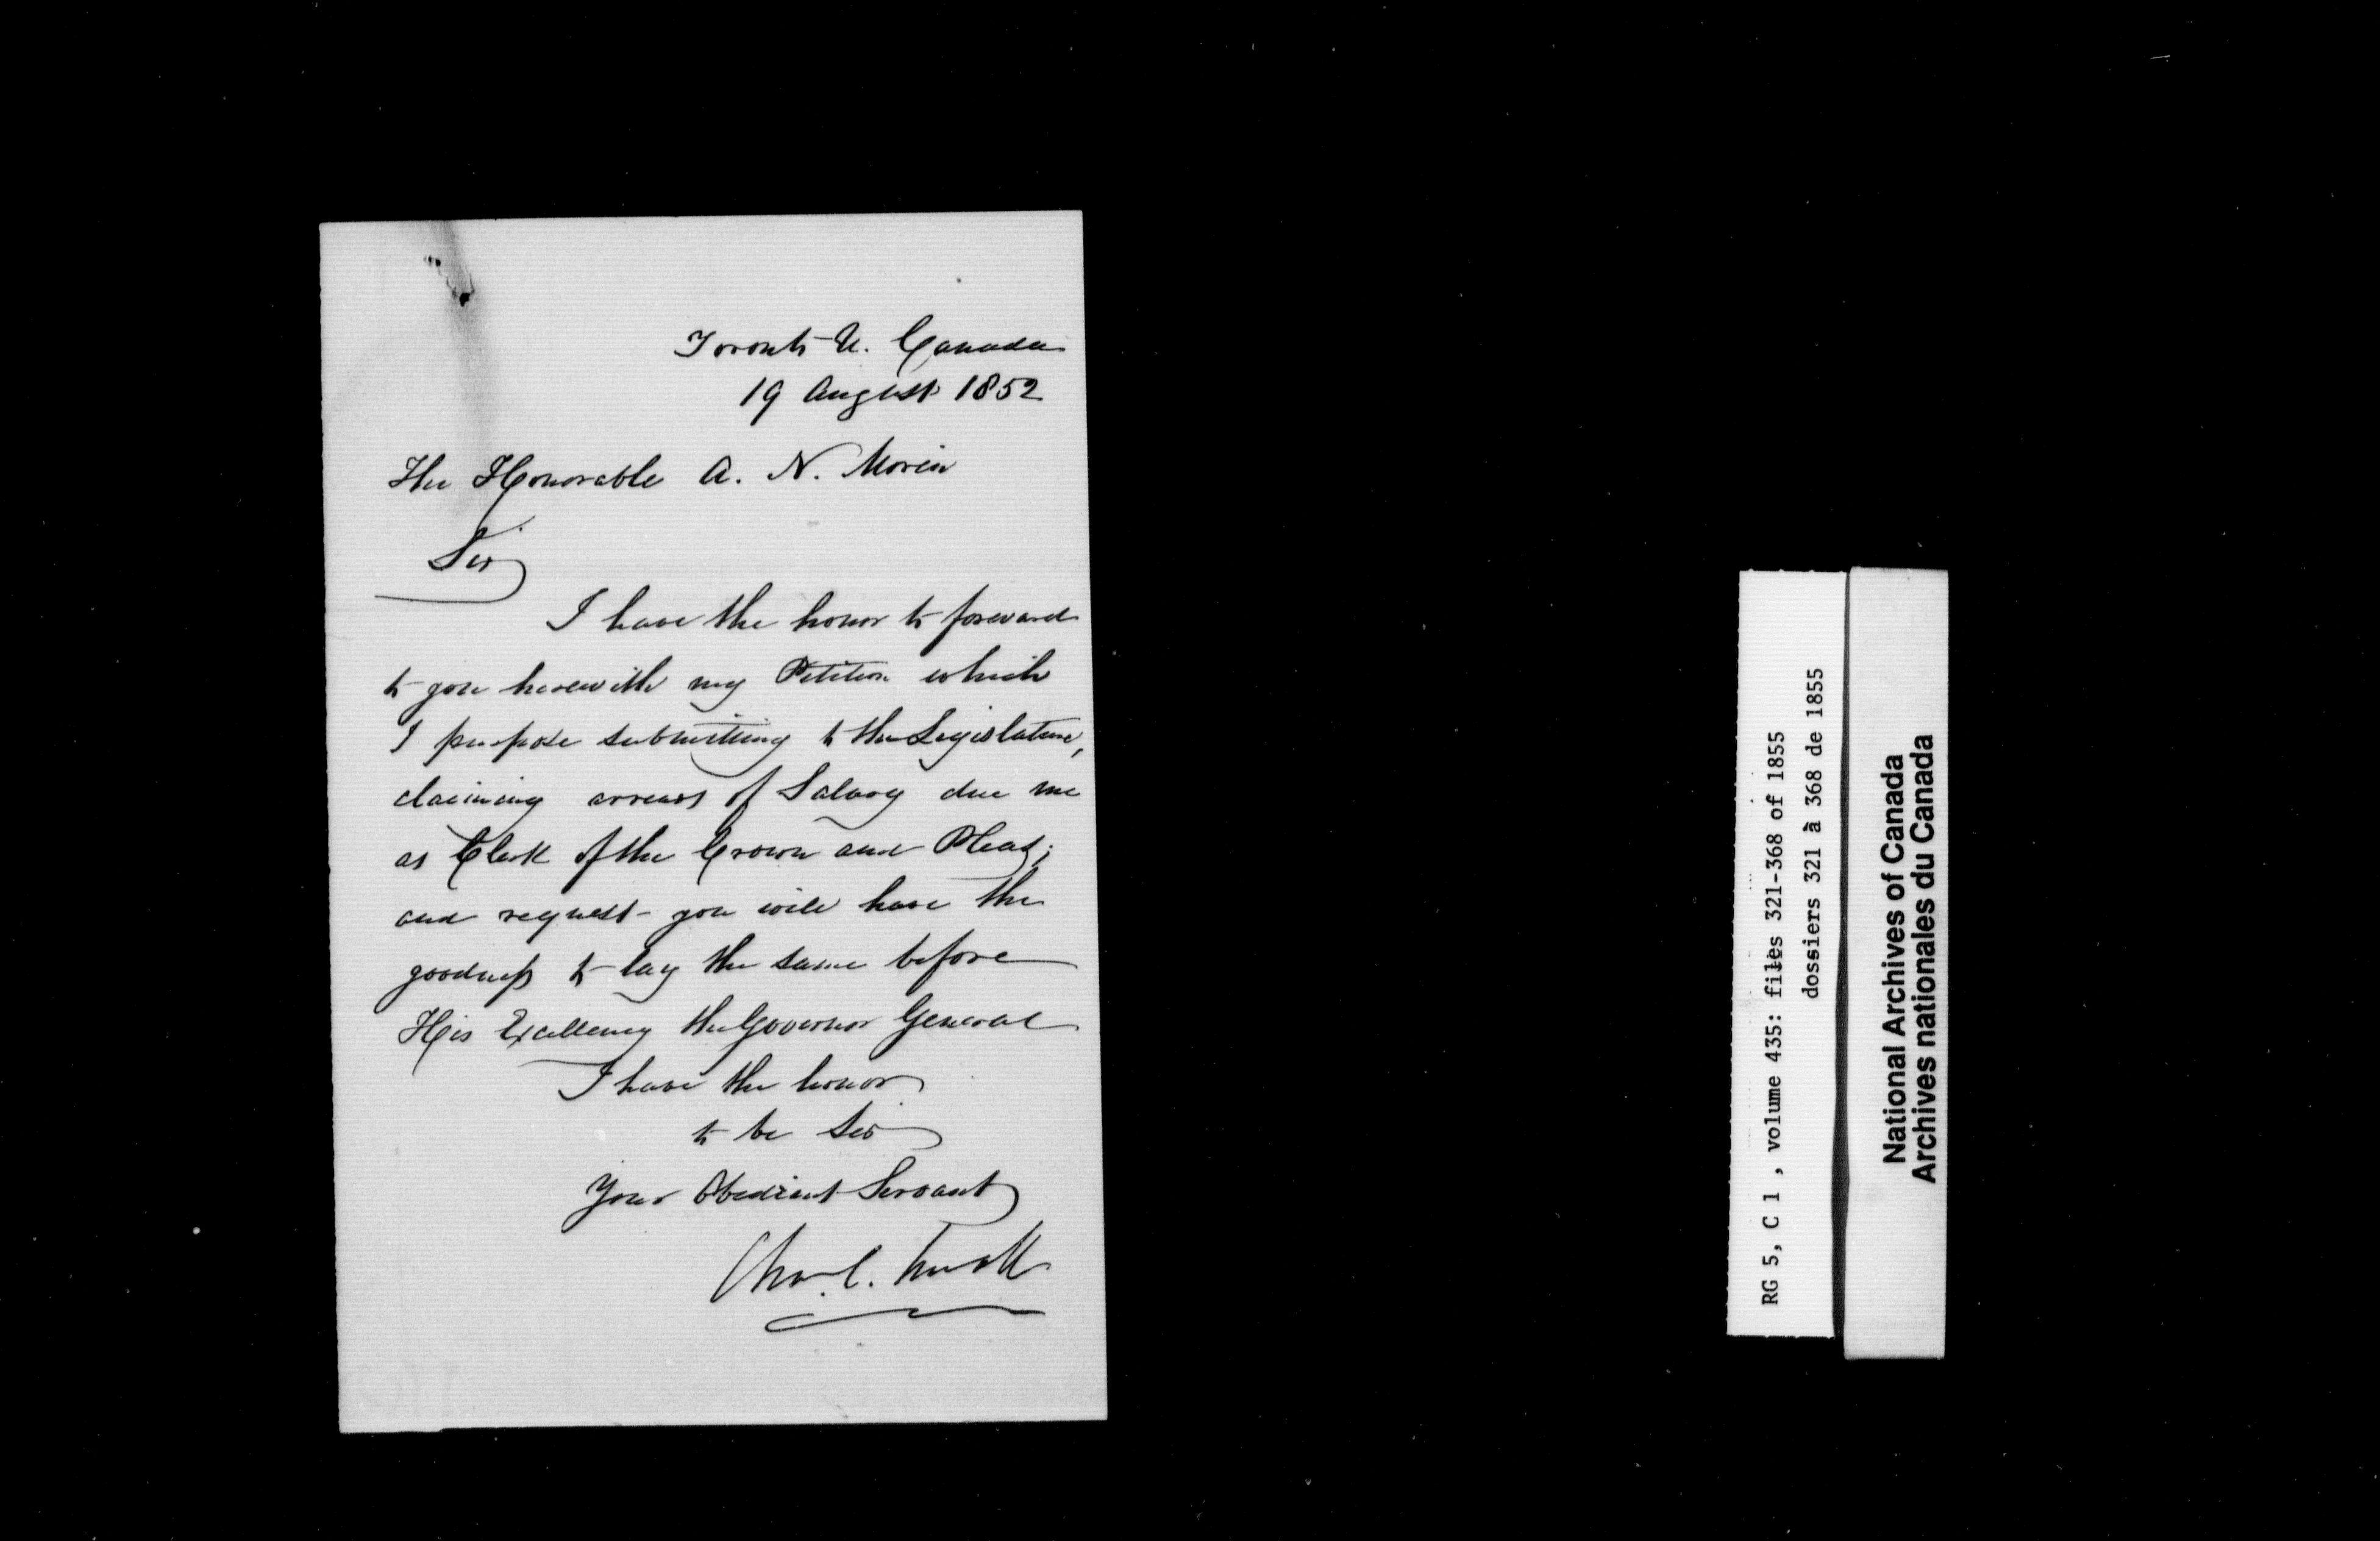 Toronto U. Canada
19 August 1852
The Honorable A. N. Morin
Sir
I have the honor to forward
to you herewith my Petition which
I purpose submitting to the Legislature,
claiming arrears of Salary due me
as Clerk of the Crown and Pleas;
and request you will have the
goodness to lay the same before
His Excellency the Governor General
I have the honor
to be Sir
Your Obedient Servant
Cha. C. Small
RG 5, C 1 , volume 435: files 321-368 of 1855
dossiers 321 à 368 de 1855
National Archives of Canada
Archives nationales du Canada